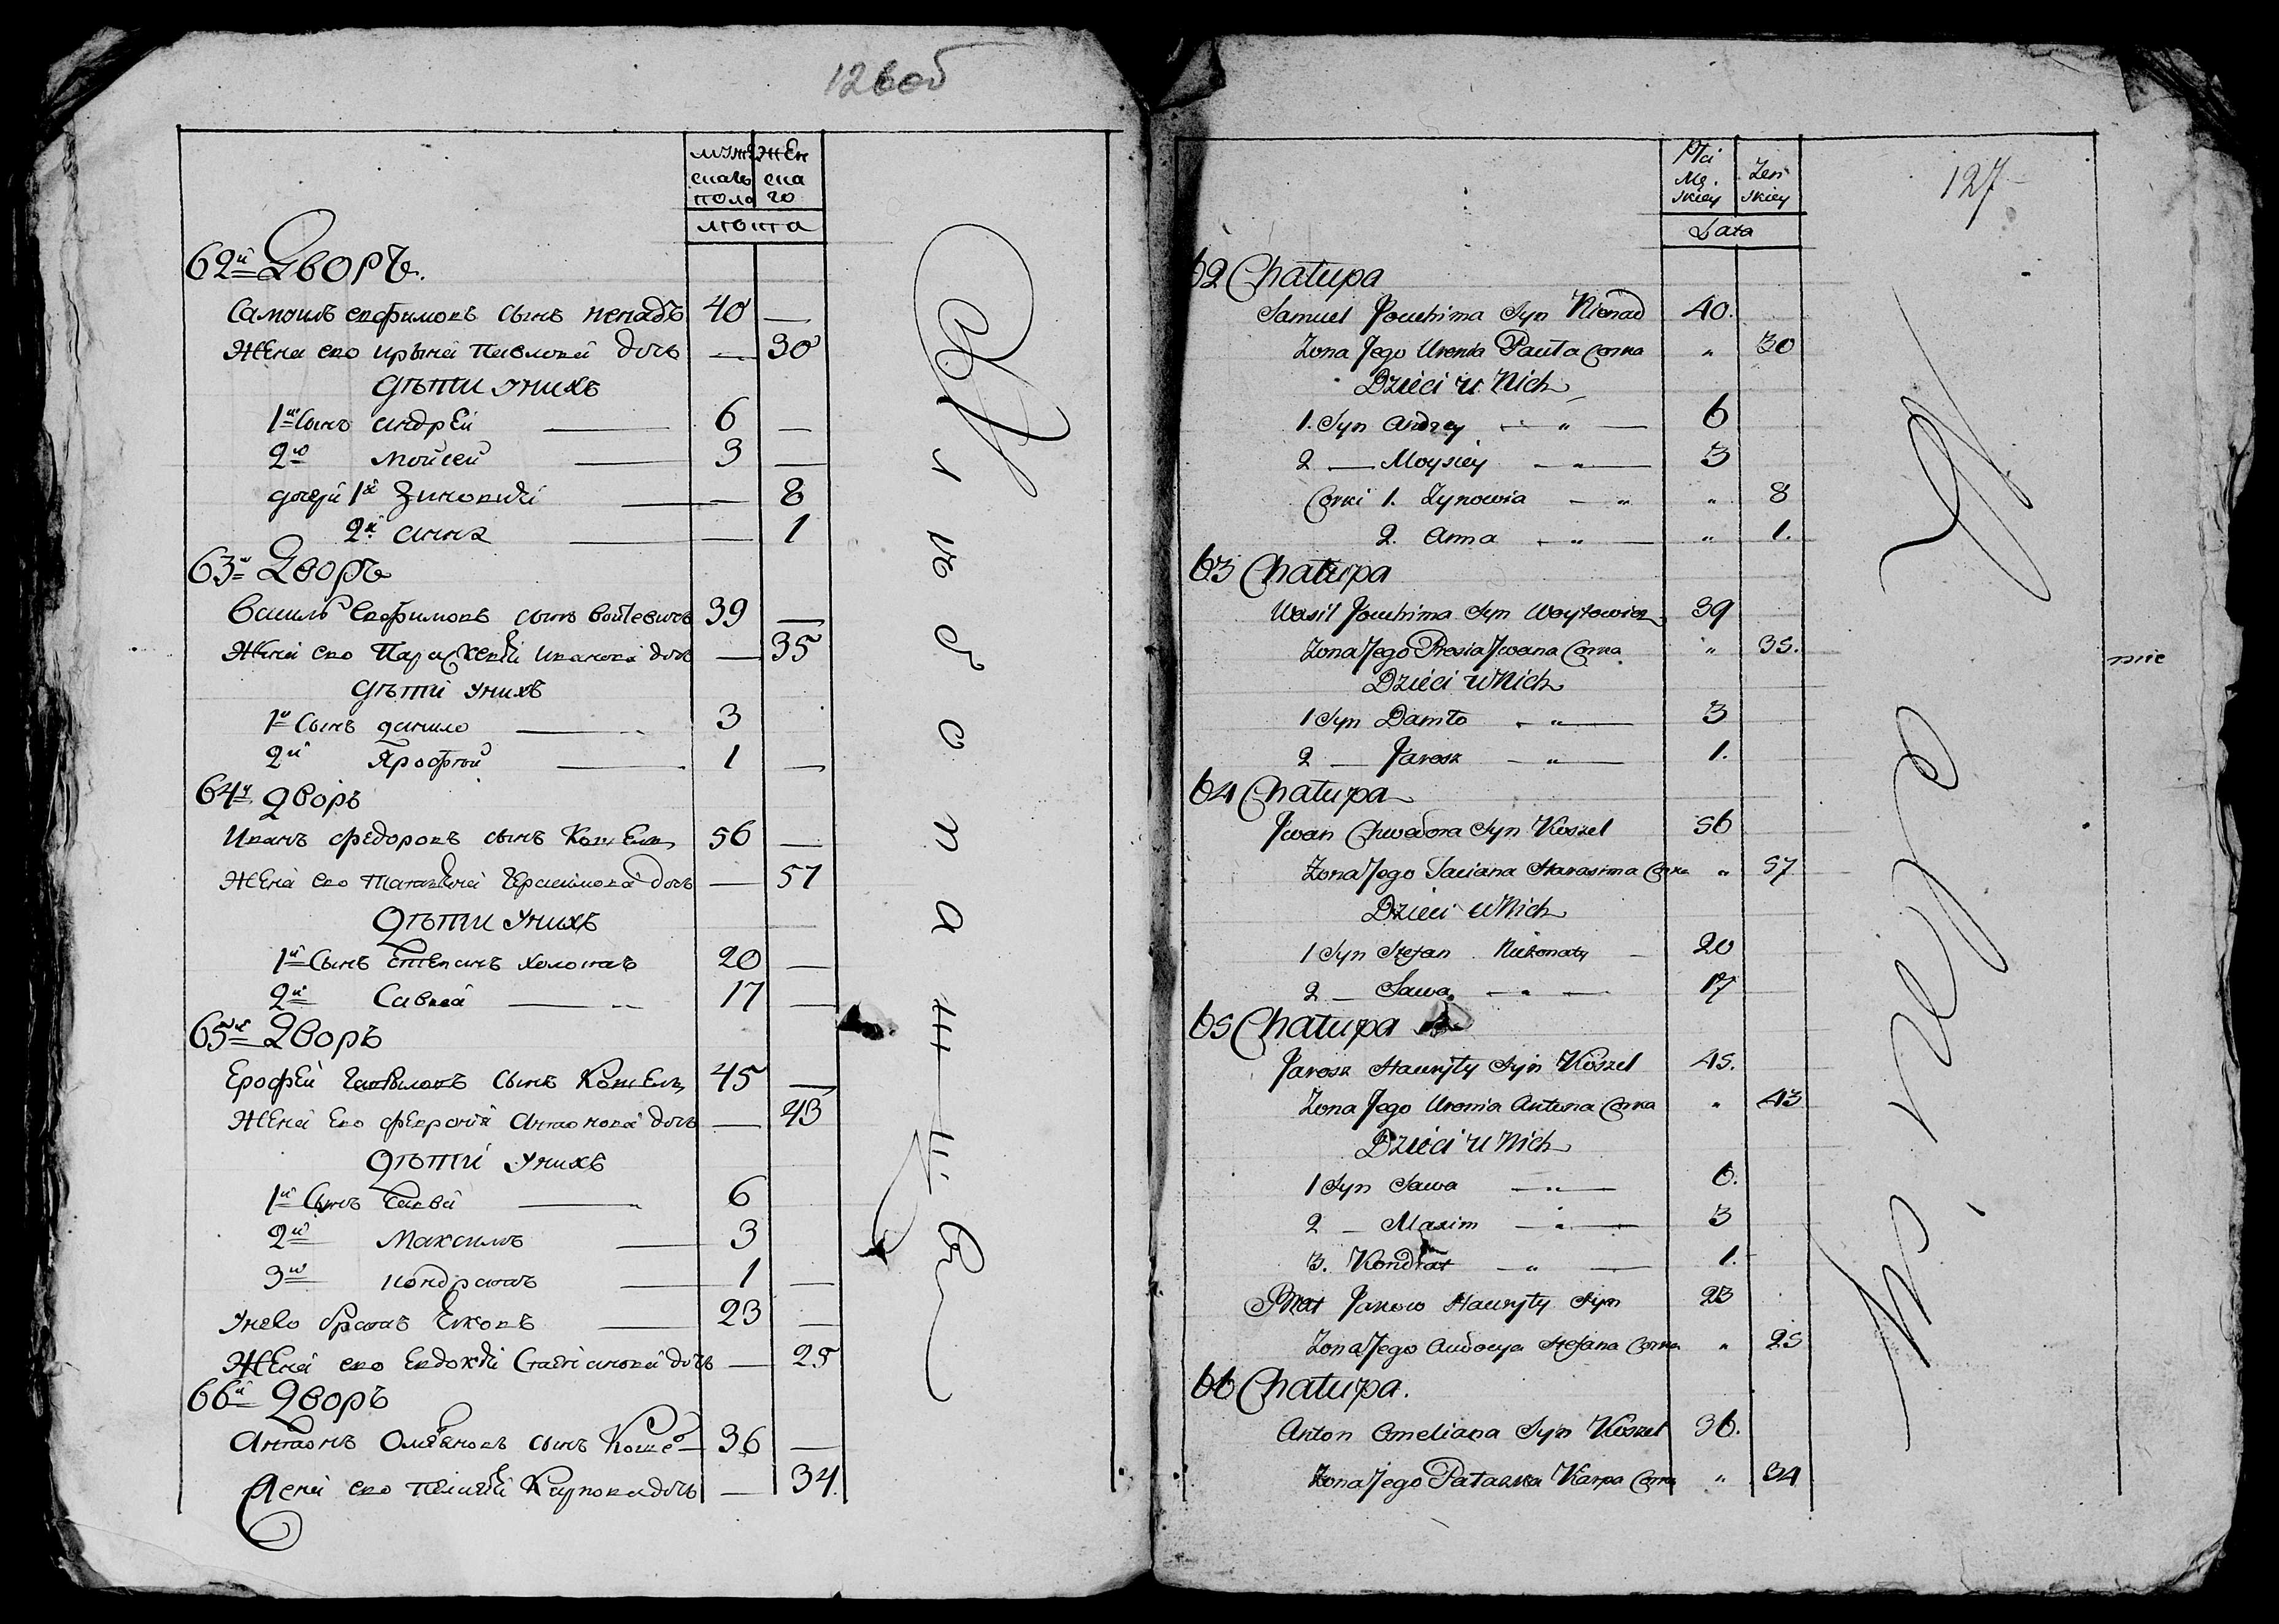 126об
мужескаго пола
женскаго
лѣта
62й Дворъ.
Самоилъ Ефимовъ сынъ Ненадъ 40 —
Жена его Ирына Павлова дочь — 30
Дѣти у нихъ
1й Сынъ Андрей — 6 —
2й Мойсей — 3 —
дочери 1я Зиновия — — 8
2я Анна — — 1
63й Дворъ
Василь Ефимовъ сынъ Войтевичъ 39 —
Жена его Параскевiя Иванова дочь — 35
Дѣти у нихъ
1й Сынъ Данило — 3
2й Ярофей — 1 —
64й Дворъ
Иванъ Федоровъ сынъ Кошель 56 —
Жена его Татьяна Герасимова дочь — 57
Дѣти у нихъ
1й Сынъ Степанъ холостъ 20 —
2й Савва — 17 —
65й Дворъ
Ерофей Гавриловъ сынъ Кошель 45 —
Жена Его Феврония Антонова дочь — 43
Дѣти у нихъ
1й Сынъ Савва — 6
2й Максимъ — 3
3й Кондратъ — 1 —
У него братъ Яковъ — 23 —
Жена его Евдокiя Степанова дочь — 25
66й Дворъ
Антонъ Омельяновъ сынъ Коше — 36 —
Жена его Пелагiя Карпова дочь — 34.
127
Płci Mę.skiey
Żeńskiey
Lata
62 Chałupa
Samuel Jouchima Syn Nienad 40.
Żona Jego Urenia Pauła Corka " 30
Dzieci u Nich
1. Syn Andrey — " — 6
2 — Moysiey — " — 3
Corki 1. Zynowia — " " 8
2. Anna — " — " 1.
63 Chałupa
Wasil Jouchima Syn Woytowicz 39
Żona Jego Presia Jwana Corka " 35.
Dzieci u Nich
1 Syn Daniło — " — 3
2 — Jarosz — " — 1.
64 Chałupa
Jwan Chwedora Syn Koszel 56
Żona Jego Taciana Harasima Corka " 57
Dzieci u Nich
1 Syn Stefan Nieżonaty — 20
2 — Sawa — " — 17
65 Chałupa
Jarosz Hawryły Syn Koszel 45.
Żona Jego Urenia Antona Corka " 43
Dzieci u Nich
1 Syn Sawa — " — 6.
2 — Maxim — " — 3
3. Kondrat — " — 1.
Brat Jakow Hawryły Syn 23
Żona Jego Audocya Stefana Corka " 25
66 Chałupa.
Anton Ameliana Syn Koszel 36.
Żona Jego Pałaszka Karpa Corka " 34
nie